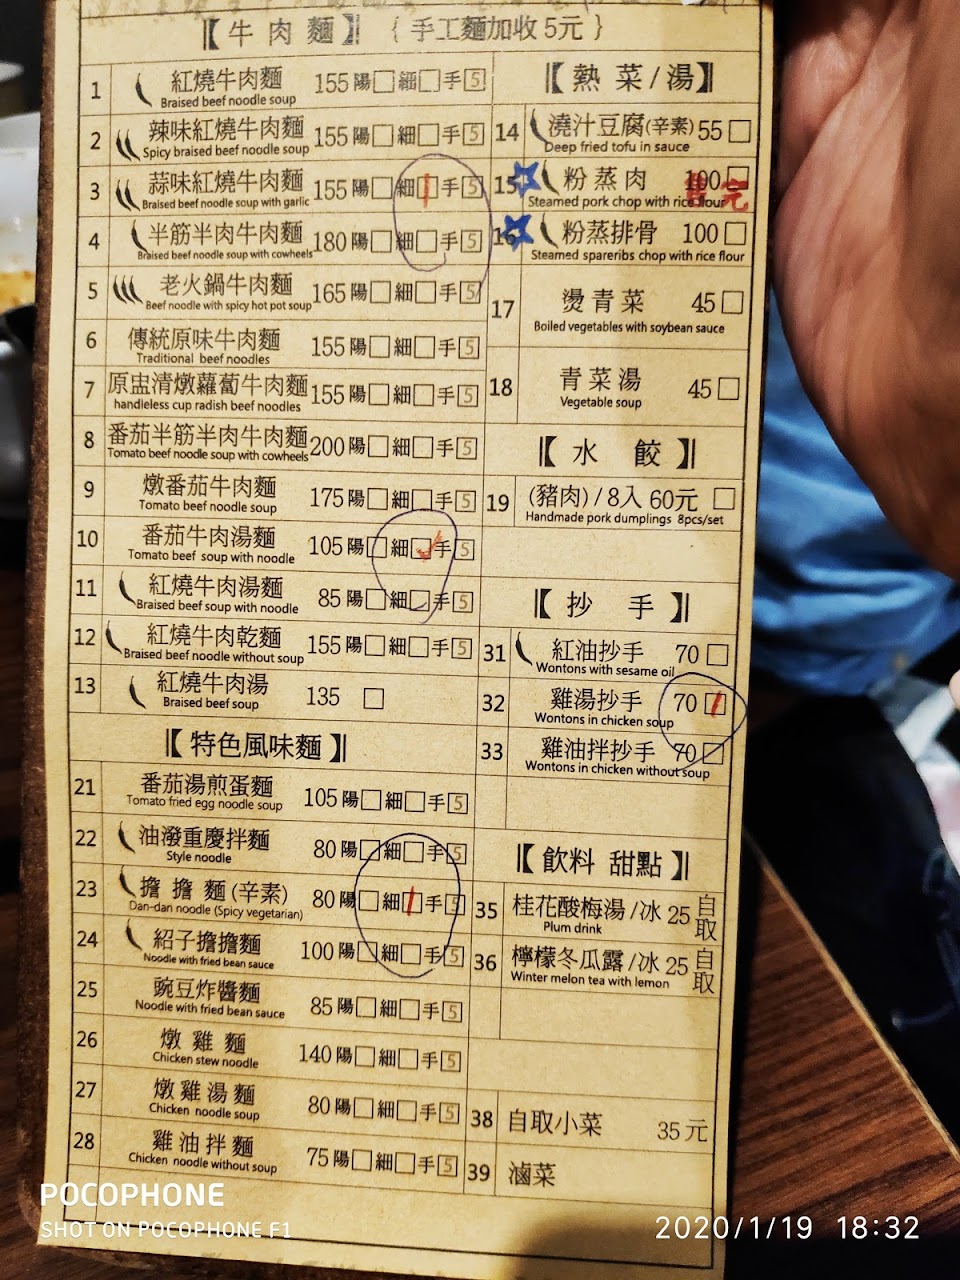 【牛肉麵】 {手工麵加收5元}
1 紅燒牛肉麵 155 陽□ 細□ 手5
Braised beef noodle soup
2 辣味紅燒牛肉麵 155 陽□ 細□ 手5
Spicy braised beef noodle soup
3 蒜味紅燒牛肉麵 155 陽□ 細□ 手5
Braised beef noodle soup with garlic
4 半筋半肉牛肉麵 180 陽□ 細□ 手5
Braised beef noodle soup with cowheels
5 老火鍋牛肉麵 165 陽□ 細□ 手5
Beef noodle with spicy hot pot soup
6 傳統原味牛肉麵 155 陽□ 細□ 手5
Traditional beef noodles
7 原盅清燉蘿蔔牛肉麵 155 陽□ 細□ 手5
handleless cup radish beef noodles
8 番茄半筋半肉牛肉麵 200 陽□ 細□ 手5
Tomato beef noodle soup with cowheels
9 燉番茄牛肉麵 175 陽□ 細□ 手5
Tomato beef noodle soup
10 番茄牛肉湯麵 105 陽□ 細□ 手5
Tomato beef soup with noodle
11 紅燒牛肉湯麵 85 陽□ 細□ 手5
Braised beef soup with noodle
12 紅燒牛肉乾麵 155 陽□ 細□ 手5
Braised beef noodle without soup
13 紅燒牛肉湯 135 □
Braised beef soup
【特色風味麵】
21 番茄湯煎蛋麵 105 陽□ 細□ 手5
Tomato fried egg noodle soup
22 油潑重慶拌麵 80 陽□ 細□ 手5
Style noodle
23 擔擔麵(辛素) 80 陽□ 細□ 手5
Dan-dan noodle (Spicy vegetarian)
24 紹子擔擔麵 100 陽□ 細□ 手5
Noodle with fried bean sauce
25 豌豆炸醬麵 85 陽□ 細□ 手5
Noodle with fried bean sauce
26 燉雞麵 140 陽□ 細□ 手5
Chicken stew noodle
27 燉雞湯麵 80 陽□ 細□ 手5
Chicken noodle soup
28 雞油拌麵 75 陽□ 細□ 手5
Chicken noodle without soup
【熱菜/湯】
14 澆汁豆腐(辛素) 55 □
Deep fried tofu in sauce
15 粉蒸肉 100 □
Steamed pork chop with rice flour
售完
16 粉蒸排骨 100 □
Steamed spareribs chop with rice flour
17 燙青菜 45 □
Boiled vegetables with soybean sauce
18 青菜湯 45 □
Vegetable soup
【水 餃】
19 (豬肉)/8入 60元 □
Handmade pork dumplings 8pcs/set
【抄 手】
31 紅油抄手 70 □
Wontons with sesame oil
32 雞湯抄手 70 □
Wontons in chicken soup
33 雞油拌抄手 70 □
Wontons in chicken without soup
【飲料 甜點】
35 桂花酸梅湯/冰 25 自取
Plum drink
36 檸檬冬瓜露/冰 25 自取
Winter melon tea with lemon
38 自取小菜 35元
39 滷菜
POCOPHONE
SHOT ON POCOPHONE F1
2020/1/19 18:32